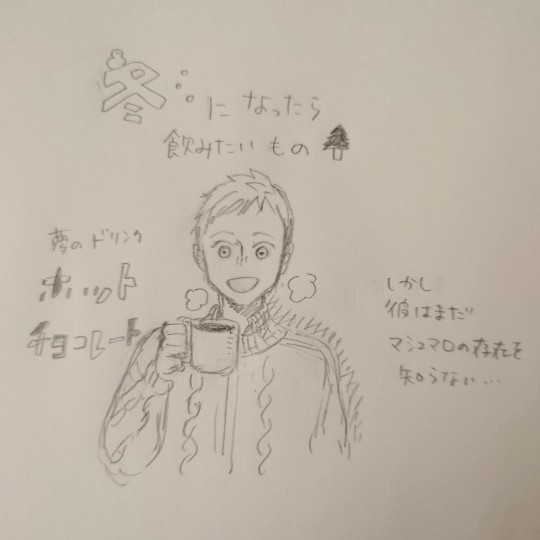 冬になったら
飲みたいもの
夢のドリンク
ホット
チョコレート
しかし
彼はまだ
マシュマロの存在を
知らない…